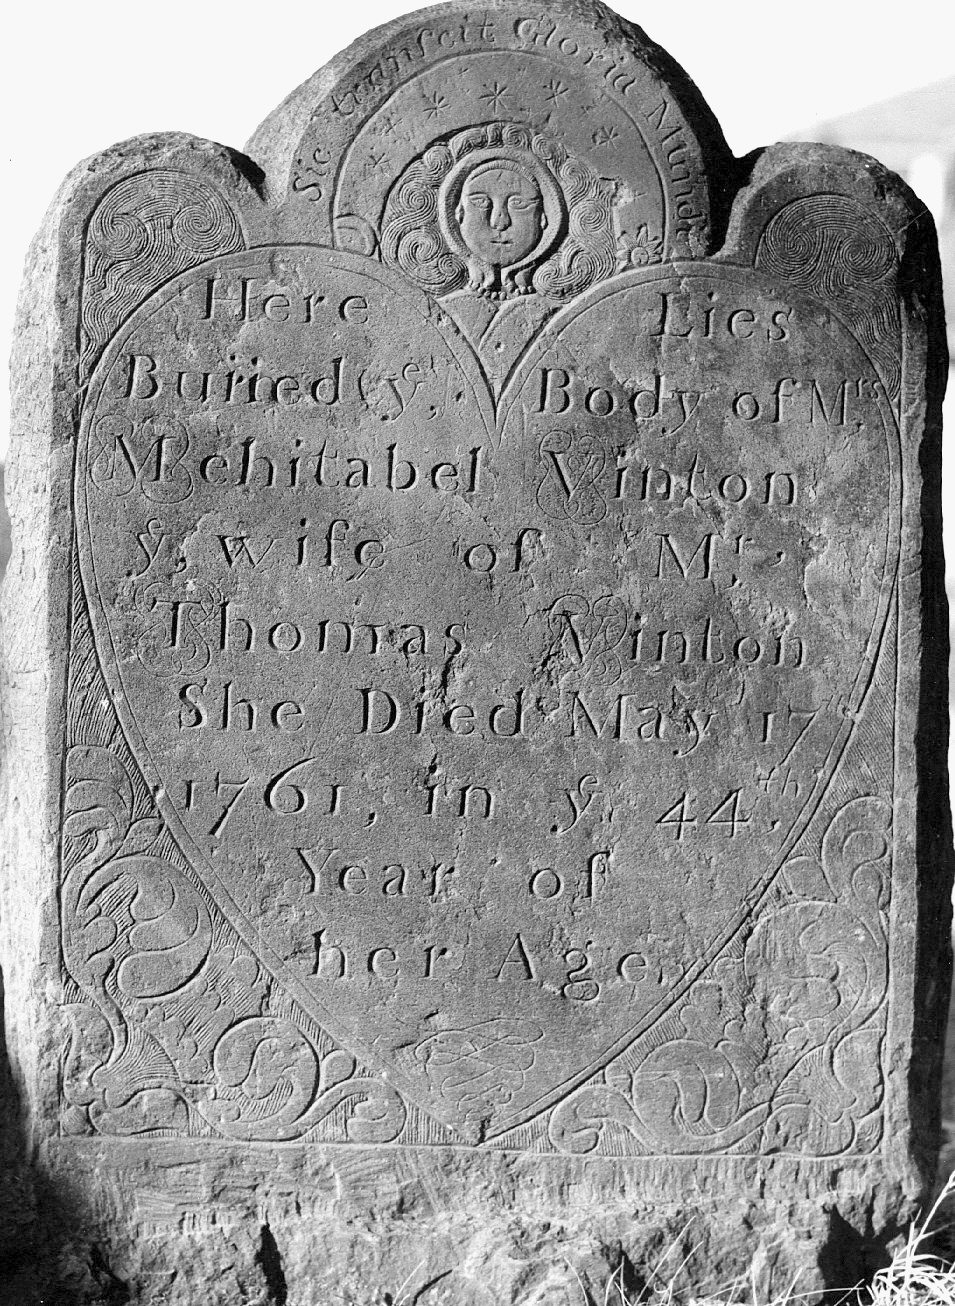 Sic transcit Gloria Mundi
Here Lies
Buried yᵉ, Body of Mʳˢ
Mehitabel Vinton
yᵉ wife of Mʳ,
Thomas Vinton
She Died May 17
1761, in yᵉ 44ᵗʰ,
Year of
her Age.